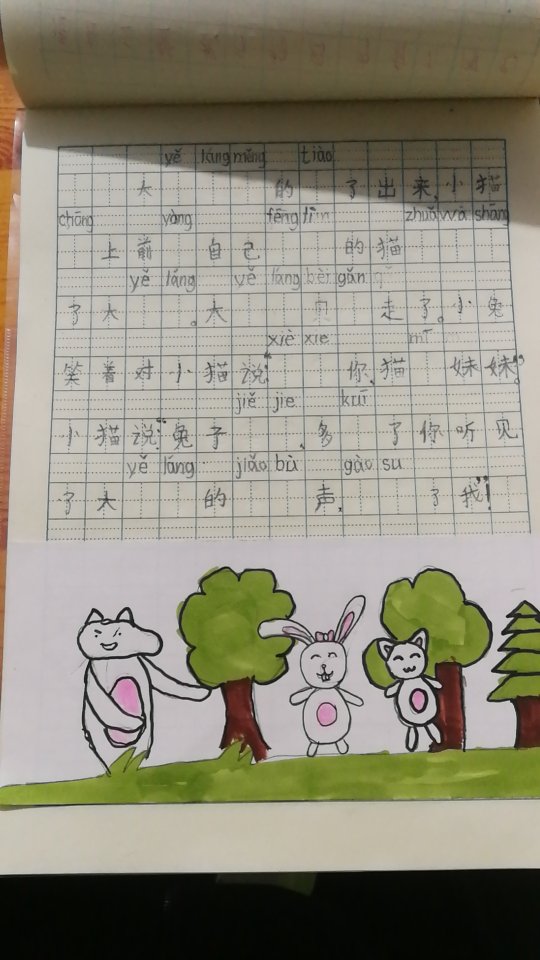 yě láng měng tiào
大 的 了出来,小猫
chōng yàng fēng lìn zhuǎ wā shāng
上前 自己 的猫
yě láng yě láng bèi gǎn
了大 。大 走了。小兔
xiè xie mī
笑着对小猫说:“ 你,猫 妹妹”
jiě jie kuī
小猫说:“兔子 ,多 了你听见
yě láng jiǎo bù gào su
了大 的 声, 了我”!